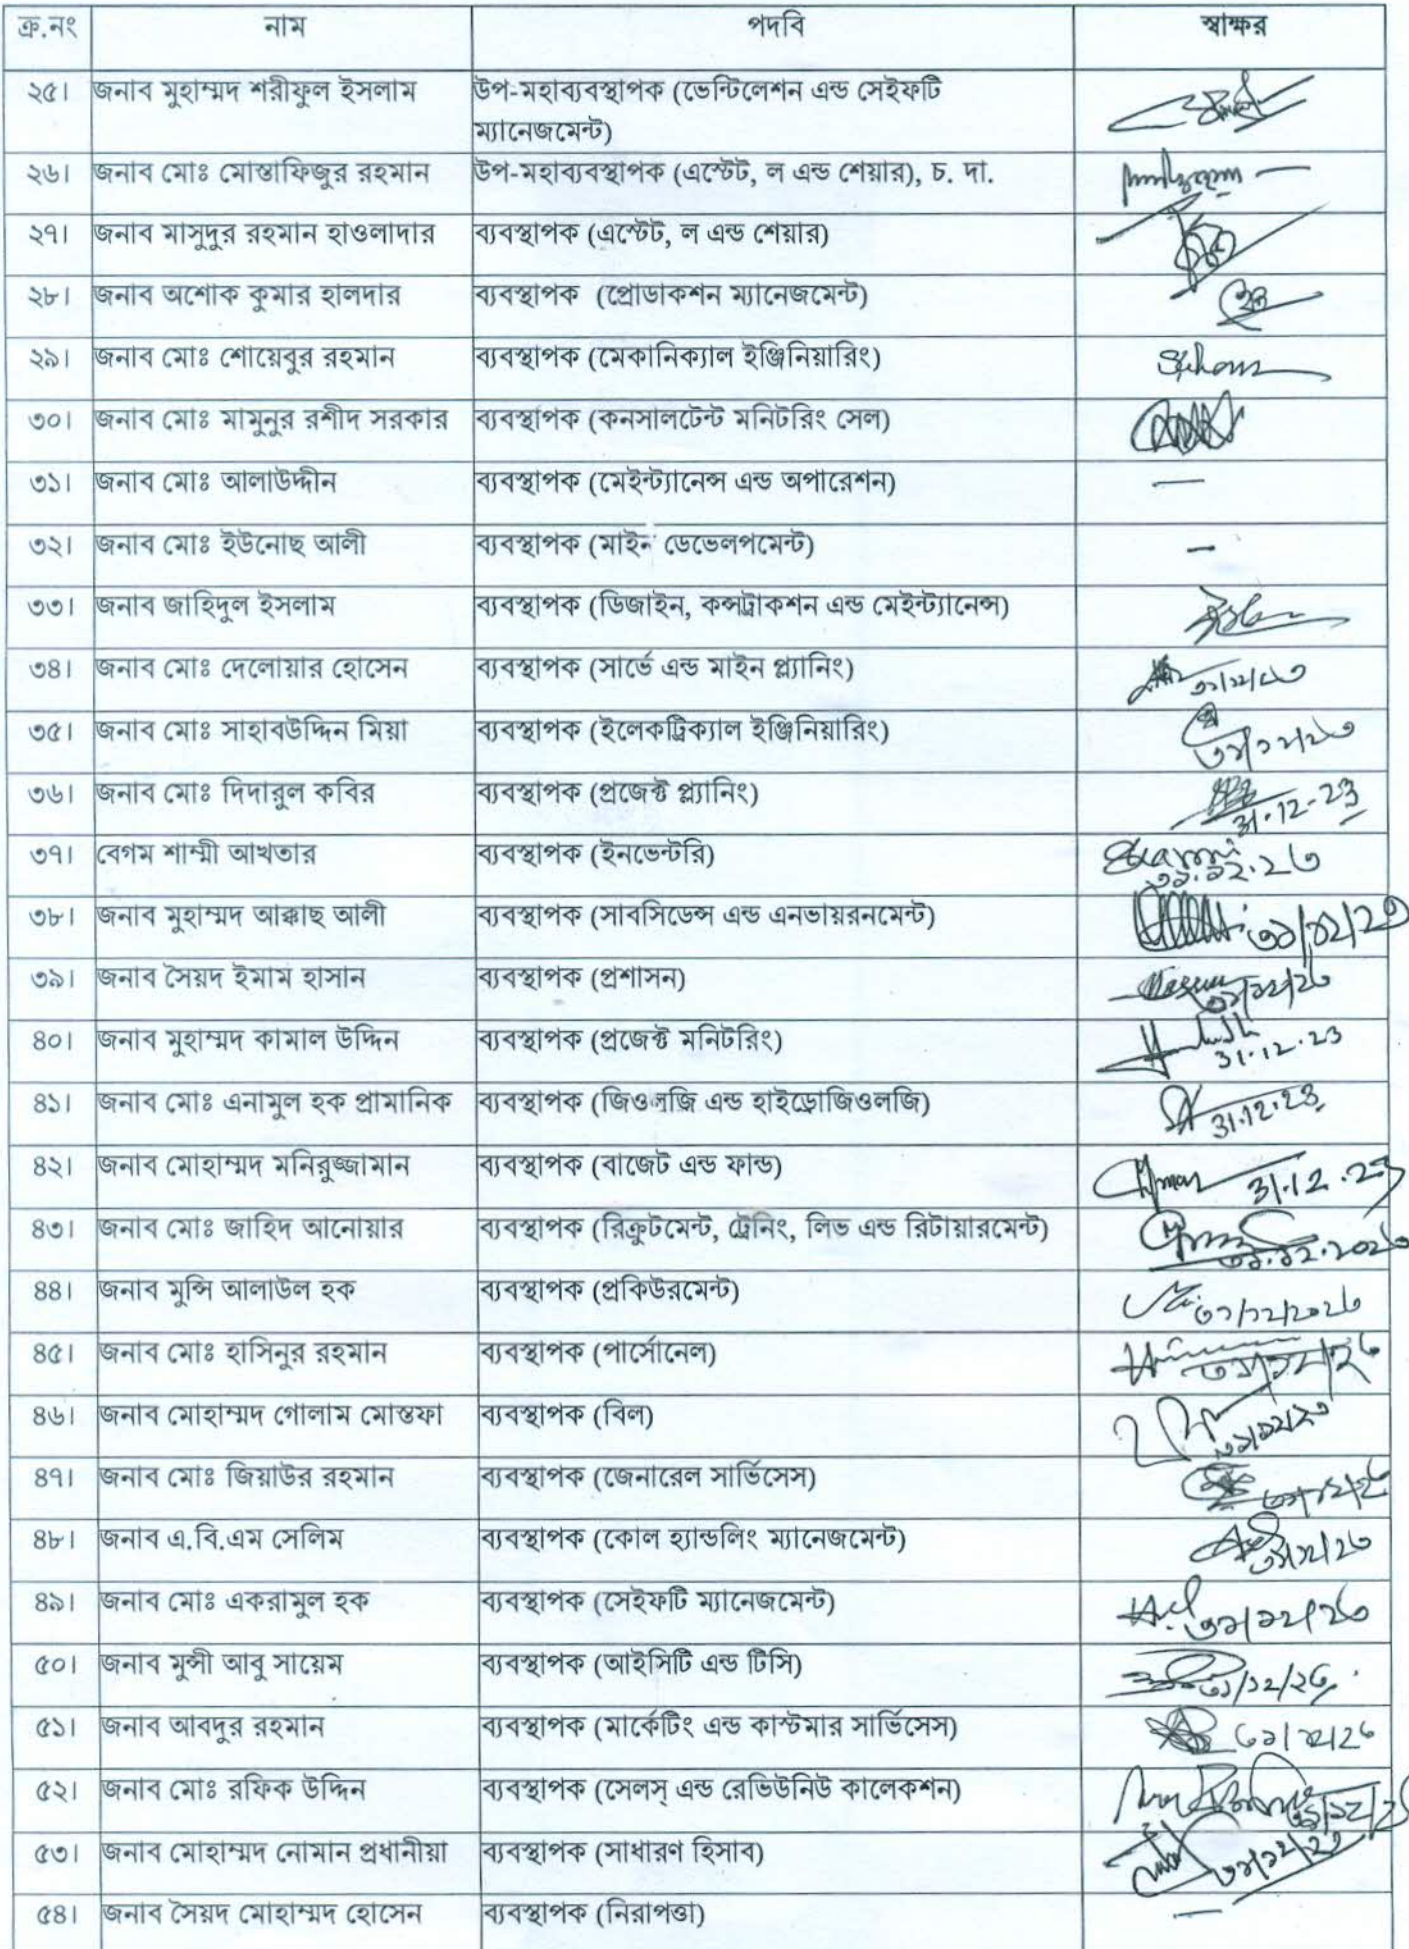 ক্র.নং নাম পদবি স্বাক্ষর
২৫। জনাব মুহাম্মদ শরীফুল ইসলাম উপ-মহাব্যবস্থাপক (ভেন্টিলেশন এন্ড সেইফটি
ম্যানেজমেন্ট)
২৬। জনাব মোঃ মোস্তাফিজুর রহমান উপ-মহাব্যবস্থাপক (এস্টেট, ল এন্ড শেয়ার), চ. দা.
২৭। জনাব মাসুদুর রহমান হাওলাদার ব্যবস্থাপক (এস্টেট, ল এন্ড শেয়ার)
২৮। জনাব অশোক কুমার হালদার ব্যবস্থাপক (প্রোডাকশন ম্যানেজমেন্ট)
২৯। জনাব মোঃ শোয়েবুর রহমান ব্যবস্থাপক (মেকানিক্যাল ইঞ্জিনিয়ারিং)
৩০। জনাব মোঃ মামুনুর রশীদ সরকার ব্যবস্থাপক (কনসালটেন্ট মনিটরিং সেল)
৩১। জনাব মোঃ আলাউদ্দীন ব্যবস্থাপক (মেইন্ট্যানেন্স এন্ড অপারেশন) —
৩২। জনাব মোঃ ইউনোছ আলী ব্যবস্থাপক (মাইন ডেভেলপমেন্ট) —
৩৩। জনাব জাহিদুল ইসলাম ব্যবস্থাপক (ডিজাইন, কন্সট্রাকশন এন্ড মেইন্ট্যানেন্স)
৩৪। জনাব মোঃ দেলোয়ার হোসেন ব্যবস্থাপক (সার্ভে এন্ড মাইন প্ল্যানিং) ৩১/১২/২৩
৩৫। জনাব মোঃ সাহাবউদ্দিন মিয়া ব্যবস্থাপক (ইলেকট্রিক্যাল ইঞ্জিনিয়ারিং) ৩১/১২/২৩
৩৬। জনাব মোঃ দিদারুল কবির ব্যবস্থাপক (প্রজেক্ট প্ল্যানিং) 31.12-23
৩৭। বেগম শাম্মী আখতার ব্যবস্থাপক (ইনভেন্টরি) ৩১.১২.২৩
৩৮। জনাব মুহাম্মদ আক্কাছ আলী ব্যবস্থাপক (সাবসিডেন্স এন্ড এনভায়রনমেন্ট) ৩১/১২/২৩
৩৯। জনাব সৈয়দ ইমাম হাসান ব্যবস্থাপক (প্রশাসন) ৩১/১২/২৩
৪০। জনাব মুহাম্মদ কামাল উদ্দিন ব্যবস্থাপক (প্রজেক্ট মনিটরিং) 31.12.23
৪১। জনাব মোঃ এনামুল হক প্রামানিক ব্যবস্থাপক (জিওলজি এন্ড হাইড্রোজিওলজি) 31.12.23
৪২। জনাব মোহাম্মদ মনিরুজ্জামান ব্যবস্থাপক (বাজেট এন্ড ফান্ড) 31.12.23
৪৩। জনাব মোঃ জাহিদ আনোয়ার ব্যবস্থাপক (রিক্রুটমেন্ট, ট্রেনিং, লিভ এন্ড রিটায়ারমেন্ট) ৩১.১২.২০২৩
৪৪। জনাব মুন্সি আলাউল হক ব্যবস্থাপক (প্রকিউরমেন্ট) ৩১/১২/২০২৩
৪৫। জনাব মোঃ হাসিনুর রহমান ব্যবস্থাপক (পার্সোনেল) ৩১/১২/২৩
৪৬। জনাব মোহাম্মদ গোলাম মোস্তফা ব্যবস্থাপক (বিল) ৩১/১২/২৩
৪৭। জনাব মোঃ জিয়াউর রহমান ব্যবস্থাপক (জেনারেল সার্ভিসেস) ৩১/১২/২৩
৪৮। জনাব এ.বি.এম সেলিম ব্যবস্থাপক (কোল হ্যান্ডলিং ম্যানেজমেন্ট) ৩১/১২/২৩
৪৯। জনাব মোঃ একরামুল হক ব্যবস্থাপক (সেইফটি ম্যানেজমেন্ট) ৩১/১২/২৩
৫০। জনাব মুন্সী আবু সায়েম ব্যবস্থাপক (আইসিটি এন্ড টিসি) ৩১/১২/২৩
৫১। জনাব আবদুর রহমান ব্যবস্থাপক (মার্কেটিং এন্ড কাস্টমার সার্ভিসেস) ৩১/১২/২৩
৫২। জনাব মোঃ রফিক উদ্দিন ব্যবস্থাপক (সেলস্ এন্ড রেভিউনিউ কালেকশন) ৩১/১২/২৩
৫৩। জনাব মোহাম্মদ নোমান প্রধানীয়া ব্যবস্থাপক (সাধারণ হিসাব) ৩১/১২/২৩
৫৪। জনাব সৈয়দ মোহাম্মদ হোসেন ব্যবস্থাপক (নিরাপত্তা) —